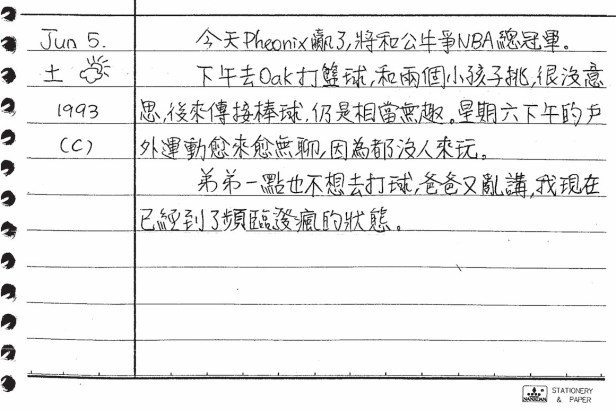 Jun 5.
土
1993
(C)
今天Pheonix贏了,將和公牛爭NBA總冠軍。
下午去Oak打籃球,和兩個小孩子挑,很沒意
思,後來傳接棒球,仍是相當無趣。星期六下午的戶
外運動愈來愈無聊,因為都沒人來玩。
弟弟一點也不想去打球,爸爸又亂講,我現在
已經到了頻臨發瘋的狀態。
STATIONERY
& PAPER